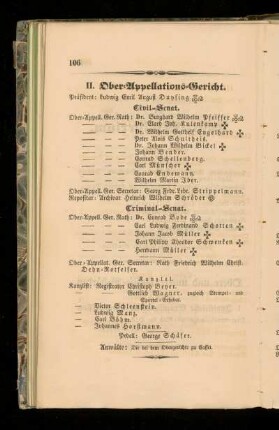 106
II. Ober-Appellations-Gericht.
Präsident: Ludwig Emil August Dupsing
Civil-Senat.
Ober-Appell. Ger. Rath: Dr. Burghard Wilhelm Pfeiffer
— — — Dr. Ulrich Joh. Kulenkamp
— — — Dr. Wilhelm Gotthelf Engelhard
— — — Peter Alois Schultheis.
— — — Dr. Johann Wilhelm Bickel
— — — Johann Bender.
— — — Conrad Schellenberg.
— — — Carl Münscher
— — — Conrad Endemann.
— — — Wilhelm Martin Ider.
Ober-Appell. Ger. Secretar: Georg Fedr. Lebr. Strippelmann.
Repositar: Archivar Heinrich Wilhelm Schröder
Criminal-Senat.
Ober-Appell. Ger. Rath: Dr. Conrad Bode
— — — Carl Ludwig Ferdinand Schotten
— — — Johann Jacob Müller
— — — Carl Philipp Theodor Schwenken
— — — Hermann Müller
Ober-Appellat. Ger. Secretar: Rath Friedrich Wilhelm Christ.
Dehn-Rotfelser.
Kanzlei.
Kanzlist: Registrator Christoph Beyer.
— Gottlieb Wagner, zugleich Stempel- und
Sportel-Erheber.
— Dieter Schleenstein.
— Ludwig Manz.
— Carl Böhm.
— Johannes Horstmann.
Pedell: George Schäfer.
Anwälte: Die bei dem Obergerichte zu Cassel.